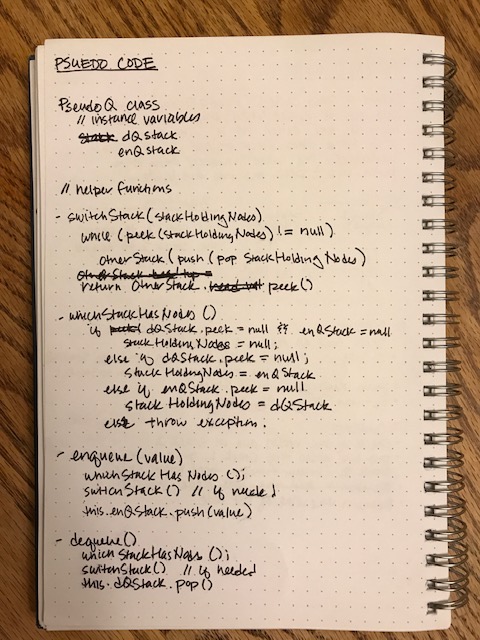 PSUEDO CODE
PseudoQ class
// instance variables
stack dQStack
enQstack
// helper functions
- switchStack(stackHoldingNodes)
while (peek(stackHoldingNodes) != null)
otherStack(push(pop StackHoldingNodes)
otherStack
return OtherStack. head val peek()
- whichStackHasNodes ()
if peek( dQStack.peek = null && enQStack = null
stackHoldingNodes = null;
else if dQStack.peek = null;
stackHoldingNodes = enQStack
else if enQStack.peek = null
stack HoldingNodes = dQStack
else throw exception.
- enqueue (value)
whichStackHasNodes ();
switchStack() // if needed
this.enQStack.push(value)
- dequeue()
whichStackHasNodes ();
switchStack() // if needed
this.dQStack.pop()